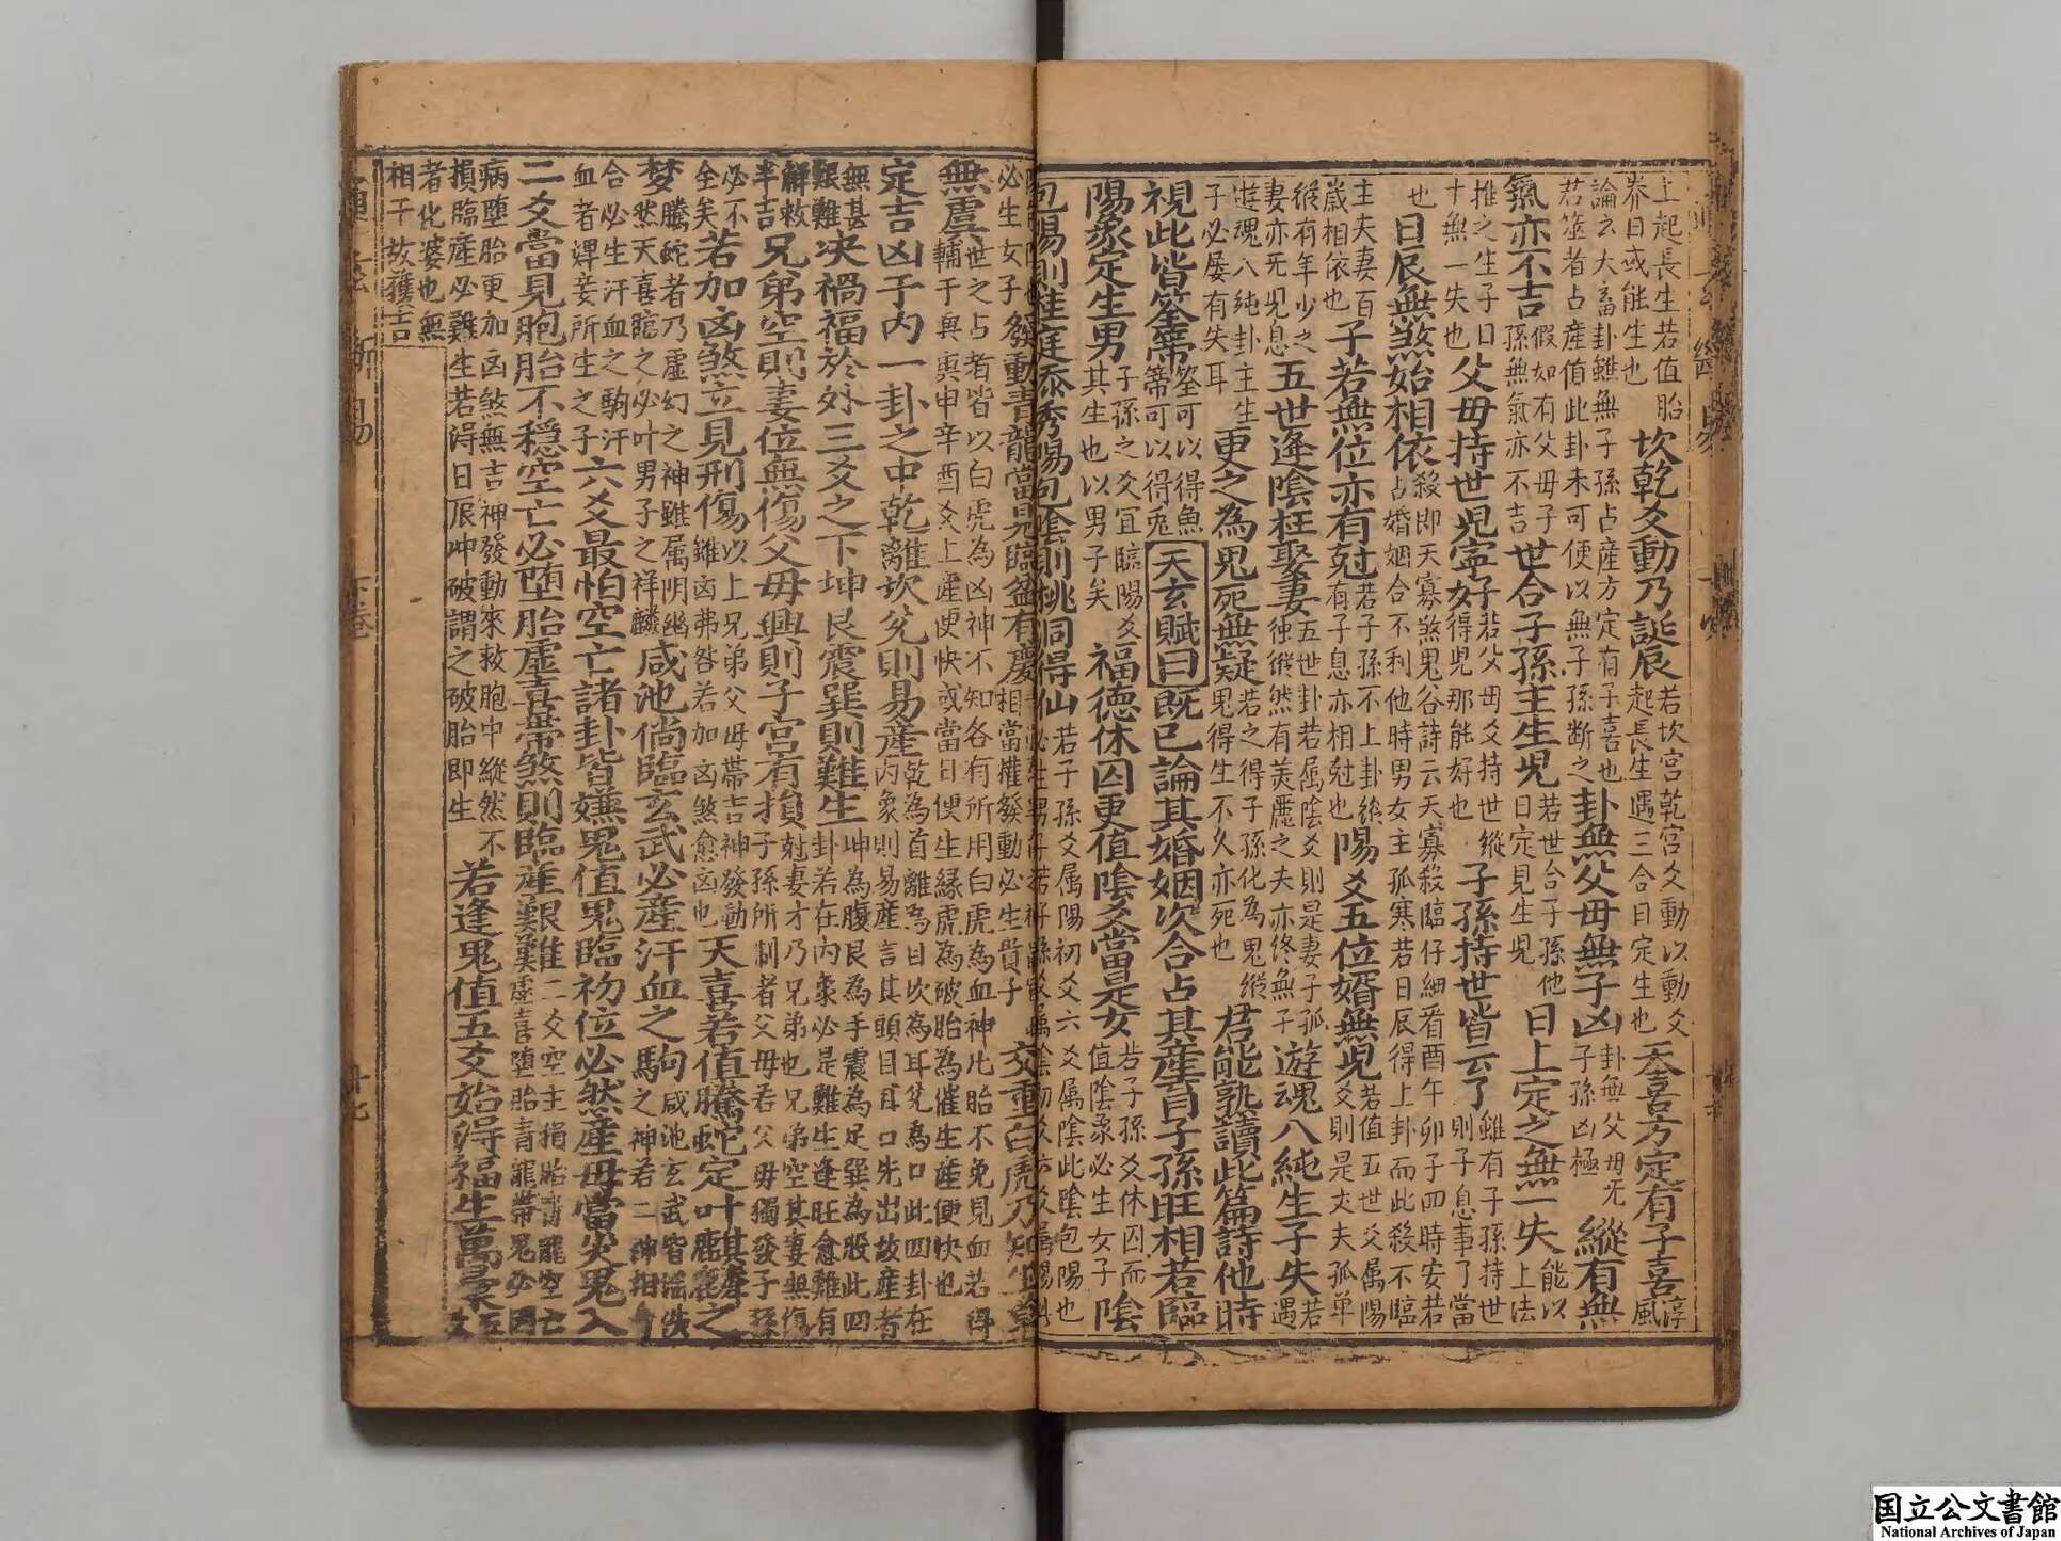 上起長生若值胎養日或能生也坎乾爻動乃誕辰若坎宮乾宮爻動以動爻起長生遇三合日定生也天喜方定有子喜淳風
論云大畜卦雖無子孫占產方定有子喜也若筮者占產值此卦未可便以無子孫斷之卦無父母無子凶卦無父母无子孫凶極縱有無
氣亦不吉假如有父母子孫無氣亦不吉世合子孫主生児若世合子孫他日定見生児日上定之無一失能以上法
推之生子日十無一失也父母持世児寧好若父母爻持世縱得児那能好也子孫持世皆云了雖有子孫持世則子息事了當
也日辰無煞始相依殺即天寡煞鬼谷詩云天寡殺臨仔細看酉午卯子四時安若占婚姻合不利他時男女主孤寒若日辰得上卦而此殺不臨
主夫妻百歲相依也子若無位亦有尅若子孫不上卦縱有子息亦相尅也陽爻五位婿無児若值五世爻属陽爻則是丈夫孤单
縱有年少之妻亦死児息五世逢陰枉娶妻五世卦若属陰爻則是妻子孤徒縱然有美麗之夫亦終無子遊魂八純生子失若遇
遊魂八純卦主生子必屡有失耳更之為鬼死無疑若之得子孫化為鬼縱鬼得生不久亦死也君能熟讀此篇詩他時
視此皆筌蹄筌可以得魚蹄可以得兎天玄賦曰既已論其婚姻次合占其產育子孫旺相若臨
陽象定生男子孫之爻冝臨陽爻其生也以男子矣福德休囚更值陰爻當是女若子孫爻休囚而值陰象必生女子陰
包陽則桂庭添秀陽包陰則桃洞得仙若子孫爻属陽初爻六爻属陰此陰包陽也
必生女子發動青龍當見臨盆有慶相當權發動必生貴子交重白虎乃知坐草
無虞世之占者皆以白虎為凶神不知各有所用白虎為血神此胎不免見血若得輔于輿寅申辛酉爻上產便快或當日便生縁虎為破胎為催生產便快也
定吉凶于內一卦之中乾離坎兌則易產乾為首離為目坎為耳兌為口此四卦在內象則易產言其頭目耳口先出故產者
無甚艱難决禍福於外三爻之下坤艮震巽則難生坤為腹艮為手震為足巽為股此四卦若在內象必是難生逢旺愈難有
解救半吉兄弟空則妻位無傷父母興則子宮有損尅妻才乃兄弟也兄弟空其妻無傷子孫所制者父母若父母獨發子孫
必不全矣若加凶煞立見刑傷以上兄弟父母帶吉神發動雖凶弗咎若加凶煞愈凶也天喜若值騰蛇定叶麒麟之
梦騰蛇者乃虛幻之神雖属阴幽然天喜舘之必叶男子之祥麟咸池倘臨玄武必產汗血之駒咸池玄武皆滛泆之神若二神相
合必生汗血之駒汗血者婢妾所生之子六爻最怕空亡諸卦皆嫌鬼值鬼臨初位必然產母當灾鬼入
二爻當見胞胎不穩空亡必堕胎虛喜帶煞則臨產艱難二爻空主損胎青龍空亡虛喜堕胎青龍帶鬼必因
病堕胎更加凶煞無吉神發動來救胞中縱然不損臨產必難生若得日辰冲破謂之破胎即生若逢鬼值五爻始得福生萬彙五爻
者化婆也無相干故獲吉